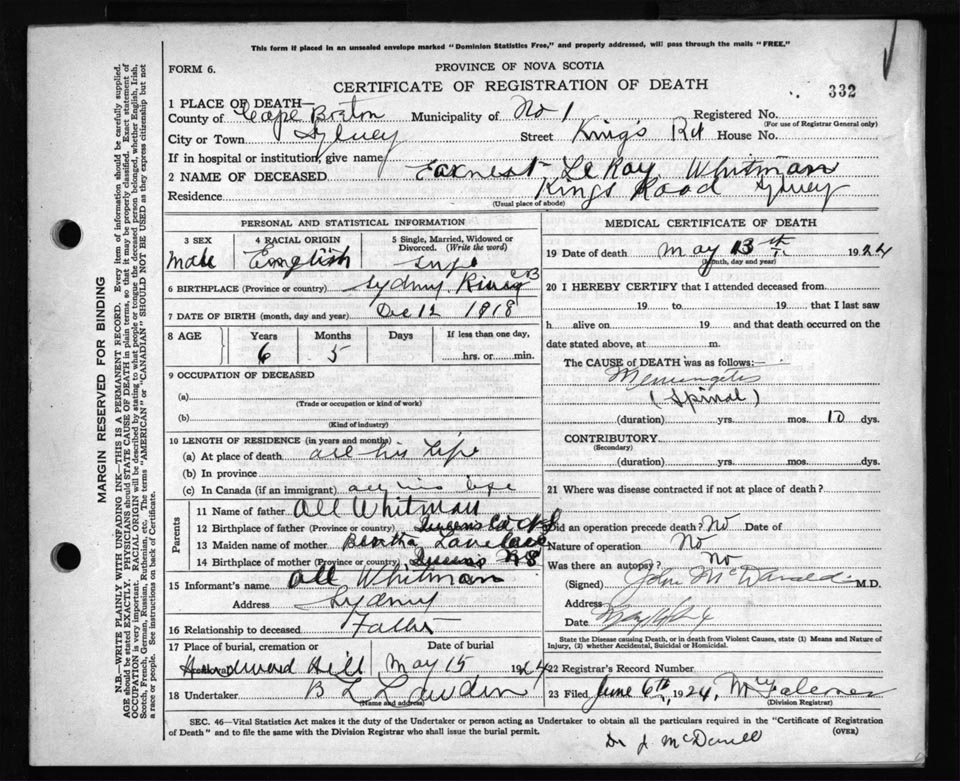 This form if placed in an unsealed envelope marked "Dominion Statistics Free," and properly addressed, will pass through the mails "FREE."
FORM 6.
PROVINCE OF NOVA SCOTIA
CERTIFICATE OF REGISTRATION OF DEATH
332
1 PLACE OF DEATH—
County of Cape Breton Municipality of No 1 Registered No.
(For use of Registrar General only)
City or Town Sydney Street King's Rd House No.
If in hospital or institution, give name
2 NAME OF DECEASED Earnest LeRoy Whitman
Residence Kings Road Sydney
(Usual place of abode)
PERSONAL AND STATISTICAL INFORMATION
3 SEX
male
4 RACIAL ORIGIN
English
5 Single, Married, Widowed or Divorced. (Write the word)
6 BIRTHPLACE (Province or country) Sydney River CB
7 DATE OF BIRTH (month, day and year) Dec 12 1918
8 AGE
Years
6
Months
5
Days
If less than one day,
hrs. or min.
9 OCCUPATION OF DECEASED
(a)
(Trade or occupation or kind of work)
(b)
(Kind of industry)
10 LENGTH OF RESIDENCE (in years and months)
(a) At place of death all his life
(b) In province
(c) In Canada (if an immigrant) all his life
Parents
11 Name of father Whitman
12 Birthplace of father (Province or country) Queens Co N S
13 Maiden name of mother Bertha
14 Birthplace of mother (Province or country) Queens N S
15 Informant's name Whitman
Address Sydney
16 Relationship to deceased Father
17 Place of burial, cremation or
Hill
Date of burial
May 15 1924
18 Undertaker B L
(Name and address)
MEDICAL CERTIFICATE OF DEATH
19 Date of death May 13th 1924
(Month, day and year)
20 I HEREBY CERTIFY that I attended deceased from
19 to 19 that I last saw
h alive on 19 and that death occurred on the
date stated above, at m.
The CAUSE of DEATH was as follows:—
Meningetis
(Spinal)
(duration) yrs. mos. 10 dys.
CONTRIBUTORY
(Secondary)
(duration) yrs. mos. dys.
21 Where was disease contracted if not at place of death?
Did an operation precede death? No Date of
Nature of operation No
Was there an autopsy? No
(Signed) John McDonald M.D.
Address
Date
State the Disease causing Death, or in death from Violent Causes, state (1) Means and Nature of Injury, (2) whether Accidental, Suicidal or Homicidal.
22 Registrar's Record Number
23 Filed June 6th, 1924,
(Division Registrar)
SEC. 46—Vital Statistics Act makes it the duty of the Undertaker or person acting as Undertaker to obtain all the particulars required in the "Certificate of Registration of Death" and to file the same with the Division Registrar who shall issue the burial permit.
(OVER)
Dr J
MARGIN RESERVED FOR BINDING
N.B.—WRITE PLAINLY WITH UNFADING INK—THIS IS A PERMANENT RECORD. Every item of information should be carefully supplied.
AGE should be stated EXACTLY. PHYSICIANS should STATE CAUSE OF DEATH in plain terms, so that it may be properly classified. Exact statement of
OCCUPATION is very important. RACIAL ORIGIN will be described by stating to what people or tongue the deceased person belonged, whether English, Irish,
Scotch, French, German, Russian, Ruthenian, etc. The terms "AMERICAN" or "CANADIAN" SHOULD NOT BE USED as they express citizenship but not
a race or people. See instructions on back of Certificate.